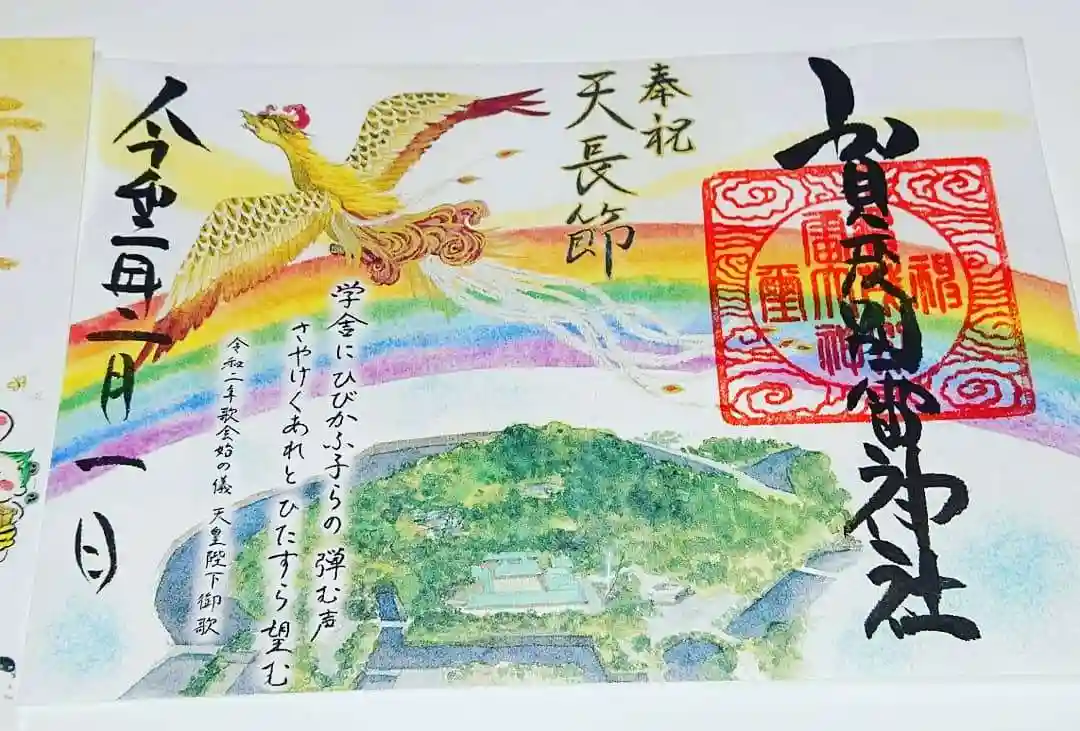 賀茂別雷神社
奉祝
天長節
学舎にひびかふ子らの 弾む声
さやけくあれとひたすら望む
令和二年歌会始の儀 天皇陛下御歌
令和二年二月一日